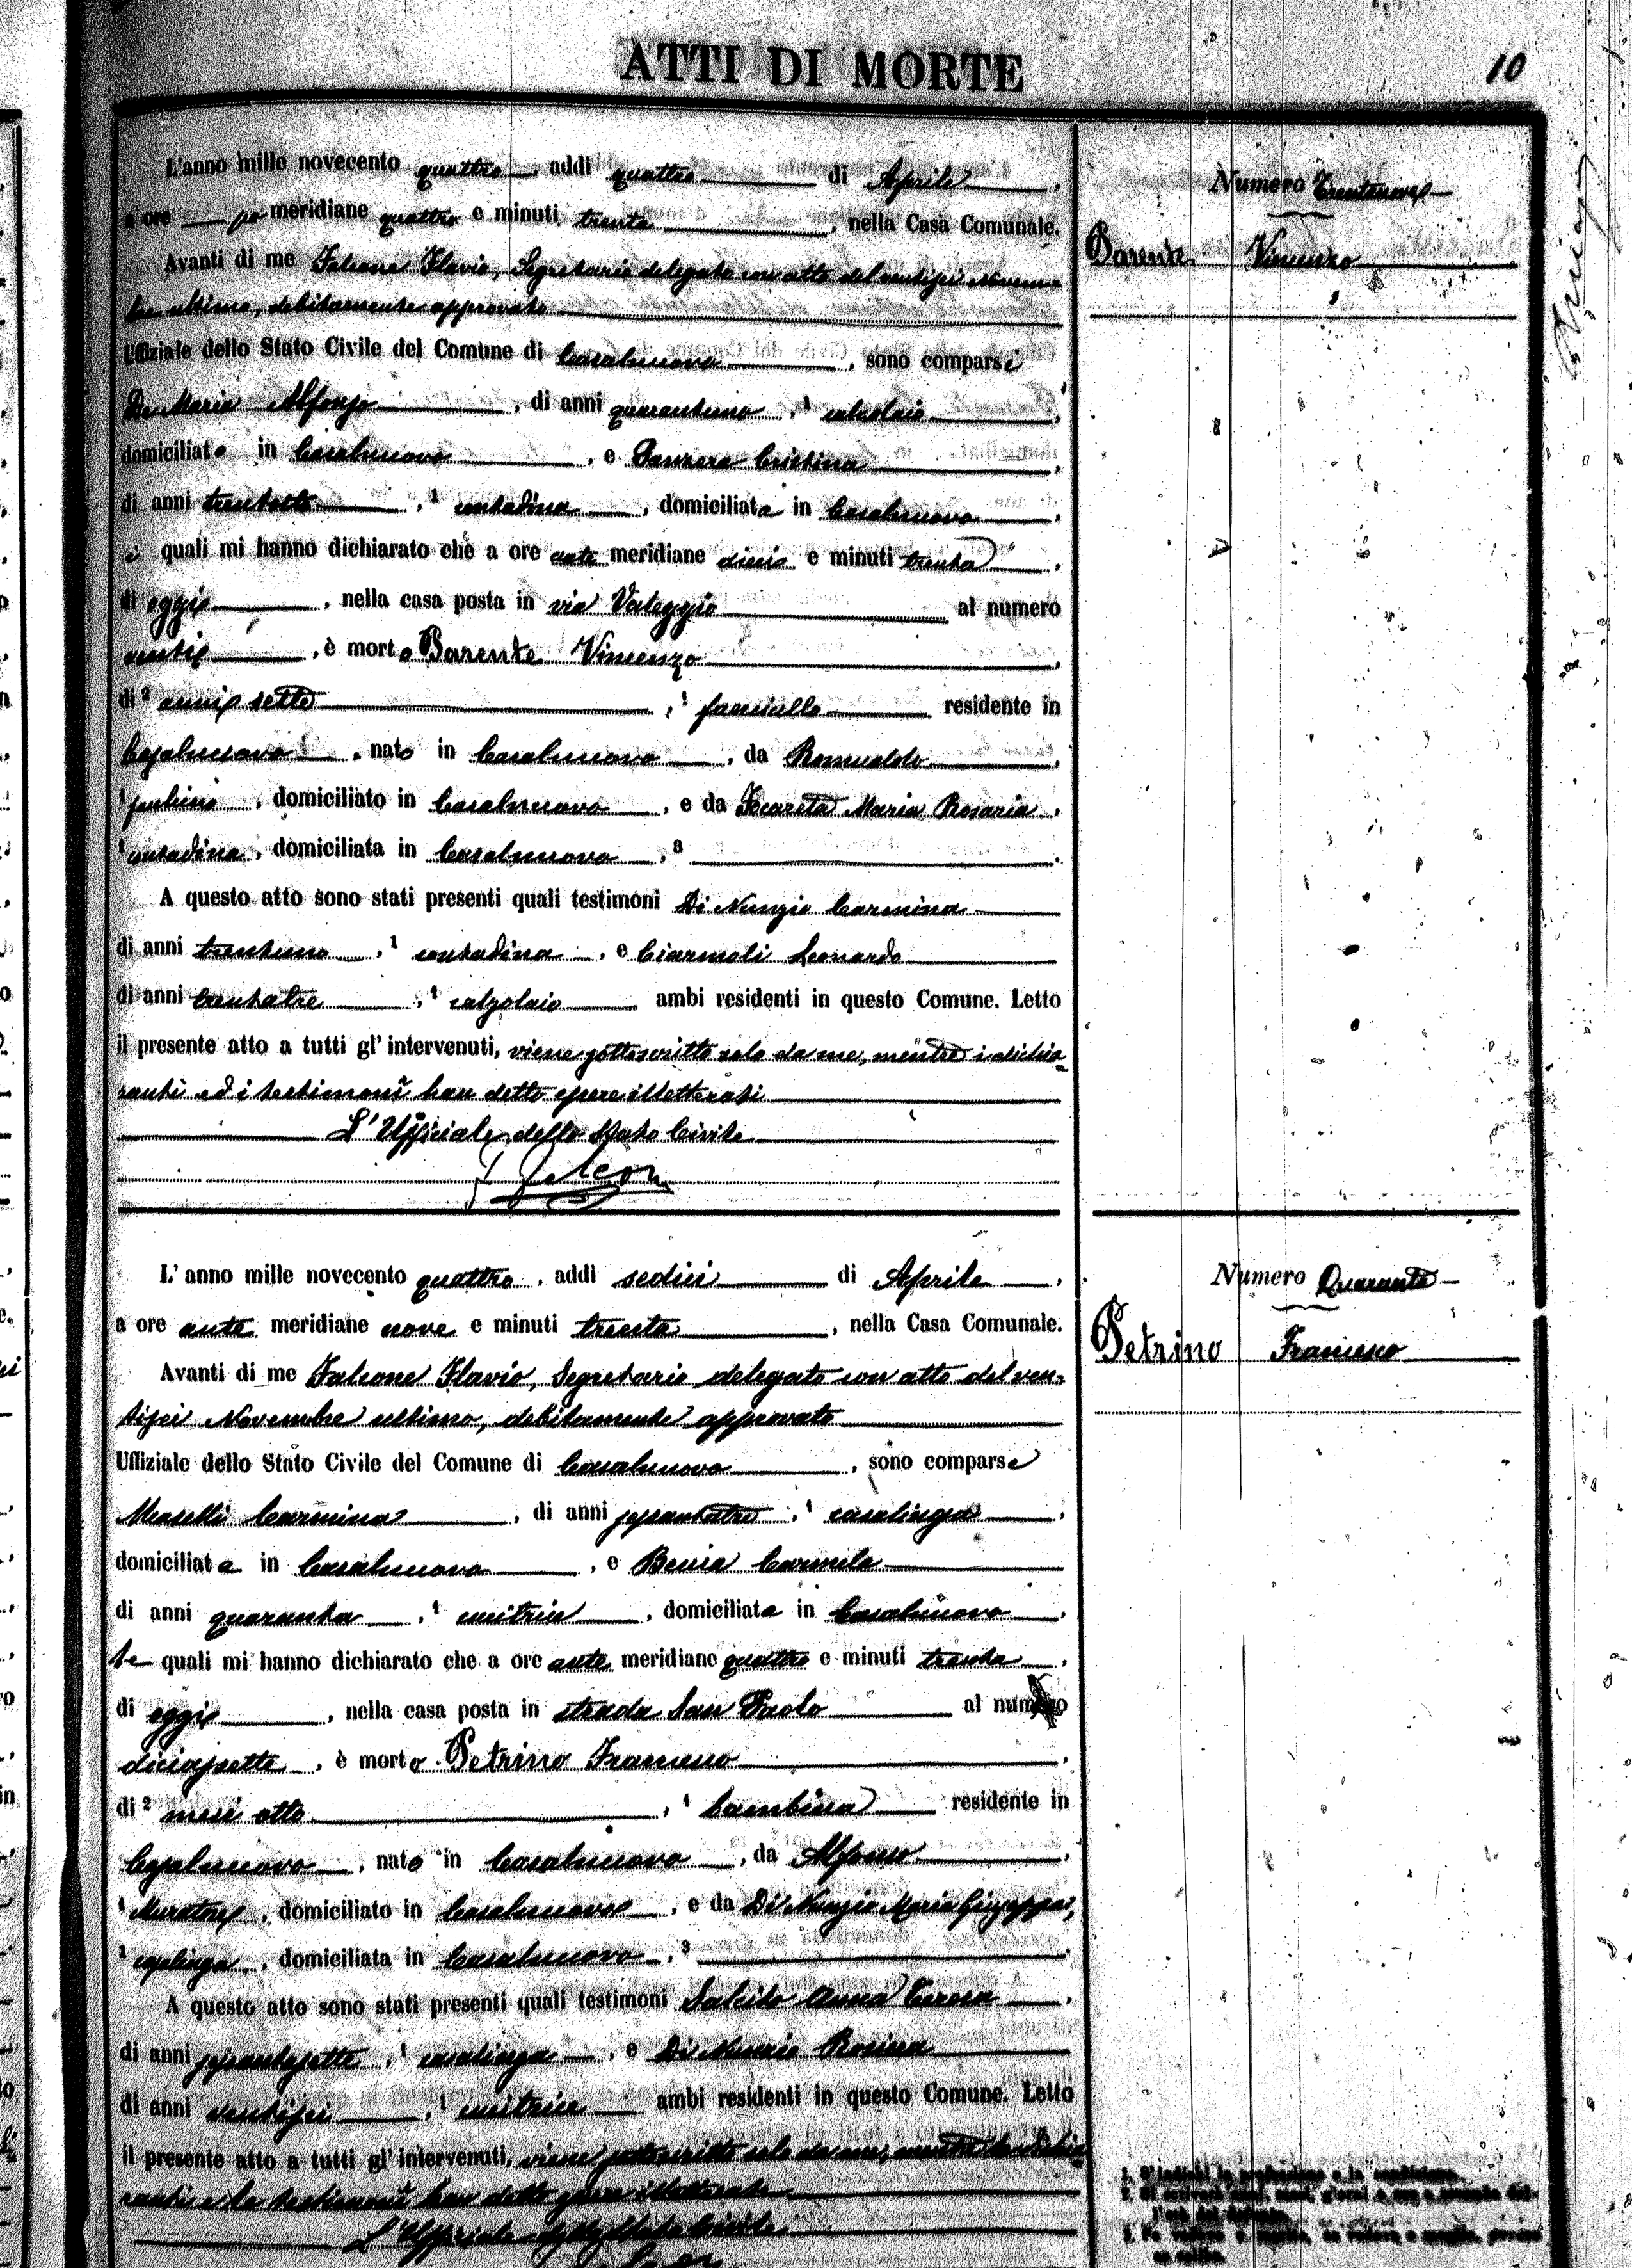 ATTI DI MORTE
10
L'anno mille novecento quattro, addì quattro di Aprile,
a ore po meridiane quattro e minuti trenta, nella Casa Comunale.
Avanti di me Falcone Flavio, Segretario delegato con atto del ventisei Novem-
bre ultimo, debitamente approvato
Uffiziale dello Stato Civile del Comune di Casalnuovo, sono comparsi
De Maria Alfonso, di anni quarantuno, ¹ calzolaio,
domiciliato in Casalnuovo, e Panzera Cristina,
di anni trentotto, ¹ contadina, domiciliata in Casalnuovo,
i quali mi hanno dichiarato che a ore ante meridiane dieci e minuti trenta,
di oggi, nella casa posta in via Valeggio al numero
venti, è morto Parente Vincenzo,
di ² anni sette, ¹ fanciullo residente in
Casalnuovo, nato in Casalnuovo, da Romualdo,
¹ domiciliato in Casalnuovo, e da Maria Rosaria,
¹ contadina, domiciliata in Casalnuovo, ³
A questo atto sono stati presenti quali testimoni Di Nunzio Carmina
di anni trentuno, ¹ contadina, e Ciarmoli Leonardo
di anni trentatre, ¹ calzolaio ambi residenti in questo Comune. Letto
il presente atto a tutti gl'intervenuti, viene sottoscritto solo da me, mentre i dichia-
ranti ed i testimoni han detto essere illetterati
L'Ufficiale dello Stato Civile
F Falcon
Numero Trentanove
Parente Vincenzo
L'anno mille novecento quattro, addì sedici di Aprile,
a ore ante meridiane nove e minuti trenta, nella Casa Comunale.
Avanti di me Falcone Flavio, Segretario delegato con atto del ven-
tisei Novembre ultimo, debitamente approvato
Uffiziale dello Stato Civile del Comune di Casalnuovo, sono comparse
Maselli Carmina, di anni sessantatre, ¹ casalinga,
domiciliata in Casalnuovo, e Carmela
di anni quaranta, ¹ cucitrice, domiciliata in Casalnuovo,
le quali mi hanno dichiarato che a ore ante meridiane quattro e minuti trenta,
di oggi, nella casa posta in strada San Paolo al numero
diciassette, è morto Petrino Francesco,
di ² mesi otto, ¹ bambino residente in
Casalnuovo, nato in Casalnuovo, da Alfonso,
¹ Muratore, domiciliato in Casalnuovo, e da Di Nunzio Maria Giuseppa,
¹ casalinga, domiciliata in Casalnuovo, ³
A questo atto sono stati presenti quali testimoni Salcito Anna Teresa,
di anni sessantasette, ¹ casalinga, e Di Nunzio Rosina
di anni ventisei, ¹ cucitrice ambi residenti in questo Comune. Letto
il presente atto a tutti gl'intervenuti, viene sottoscritto solo da me, mentre le dichia-
ranti e le testimoni han detto essere illetterate
L'Ufficiale dello Stato Civile
Numero Quaranta
Petrino Francesco
1. S'indichi la professione o la condizione.